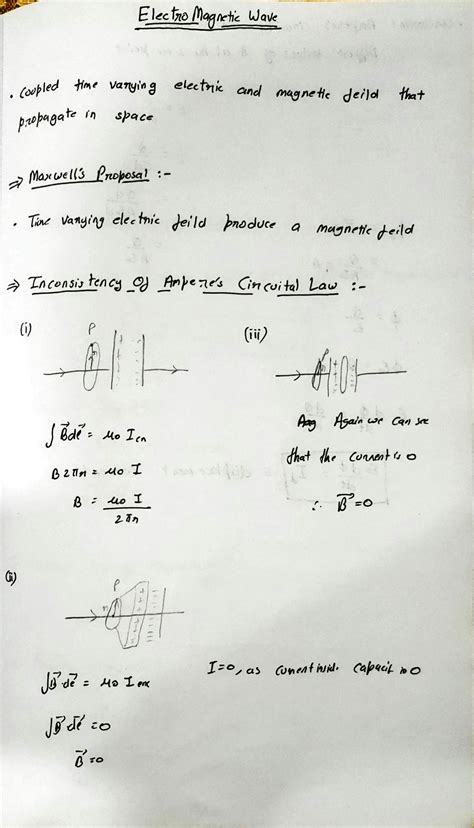 Electro Magnetic Wave
• Coupled time varying electric and magnetic feild that
propagate in space
⇒ Maxwell's Proposal :-
• Time varying electric feild produce a magnetic feild
⇒ Inconsistency Of Ampere's Circuital Law :-
(i)
P
∫ B⃗ dl⃗ = μ0 Ien
B 2πr = μ0 I
B = μ0 I / 2πr
(iii)
Again we can see
that the current is 0
∴ B⃗ = 0
(ii)
P
r
∫ B⃗ dl⃗ = μ0 I enc
∫ B⃗ dl⃗ = 0
B⃗ = 0
I = 0, as current insid. capacit is 0